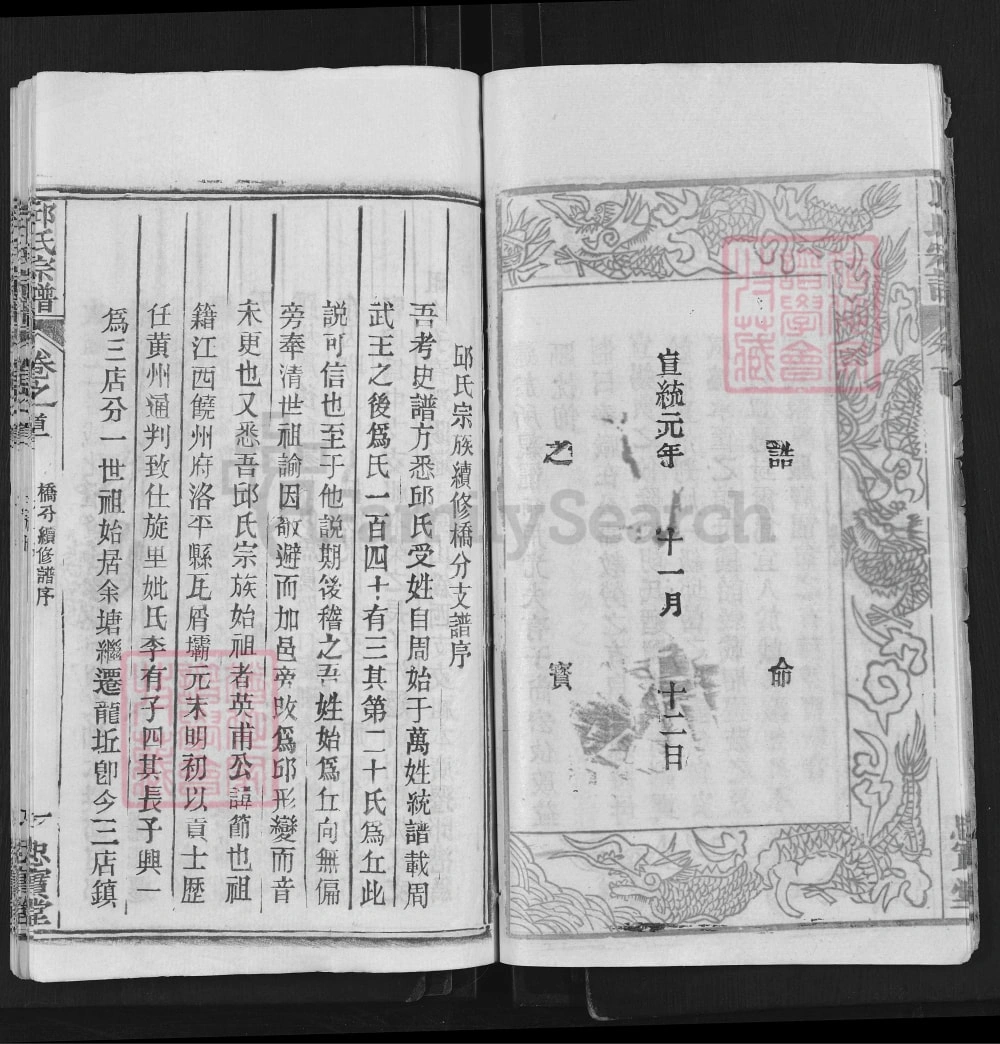 誥命
宣統元年十一月十二日
之寶
邱氏宗族續修橋分支譜序
吾考史譜方悉邱氏受姓自周始于萬姓統譜載周
武王之後爲氏一百四十有三其第二十氏爲丘此
説可信也至于他説期後稽之吾姓始爲丘向無偏
旁奉清世祖諭因敬避而加邑旁改爲邱形變而音
未更也又悉吾邱氏宗族始祖者英甫公諱節也祖
籍江西饒州府洛平縣瓦屑壩元末明初以貢士歷
任黄州通判致仕旋里妣氏李有子四其長子興一
爲三店分一世祖始居余塘繼遷龍坵卽今三店鎮
邱氏宗譜
卷之首
橋分續修譜序
一
忠實堂
FamilySearch